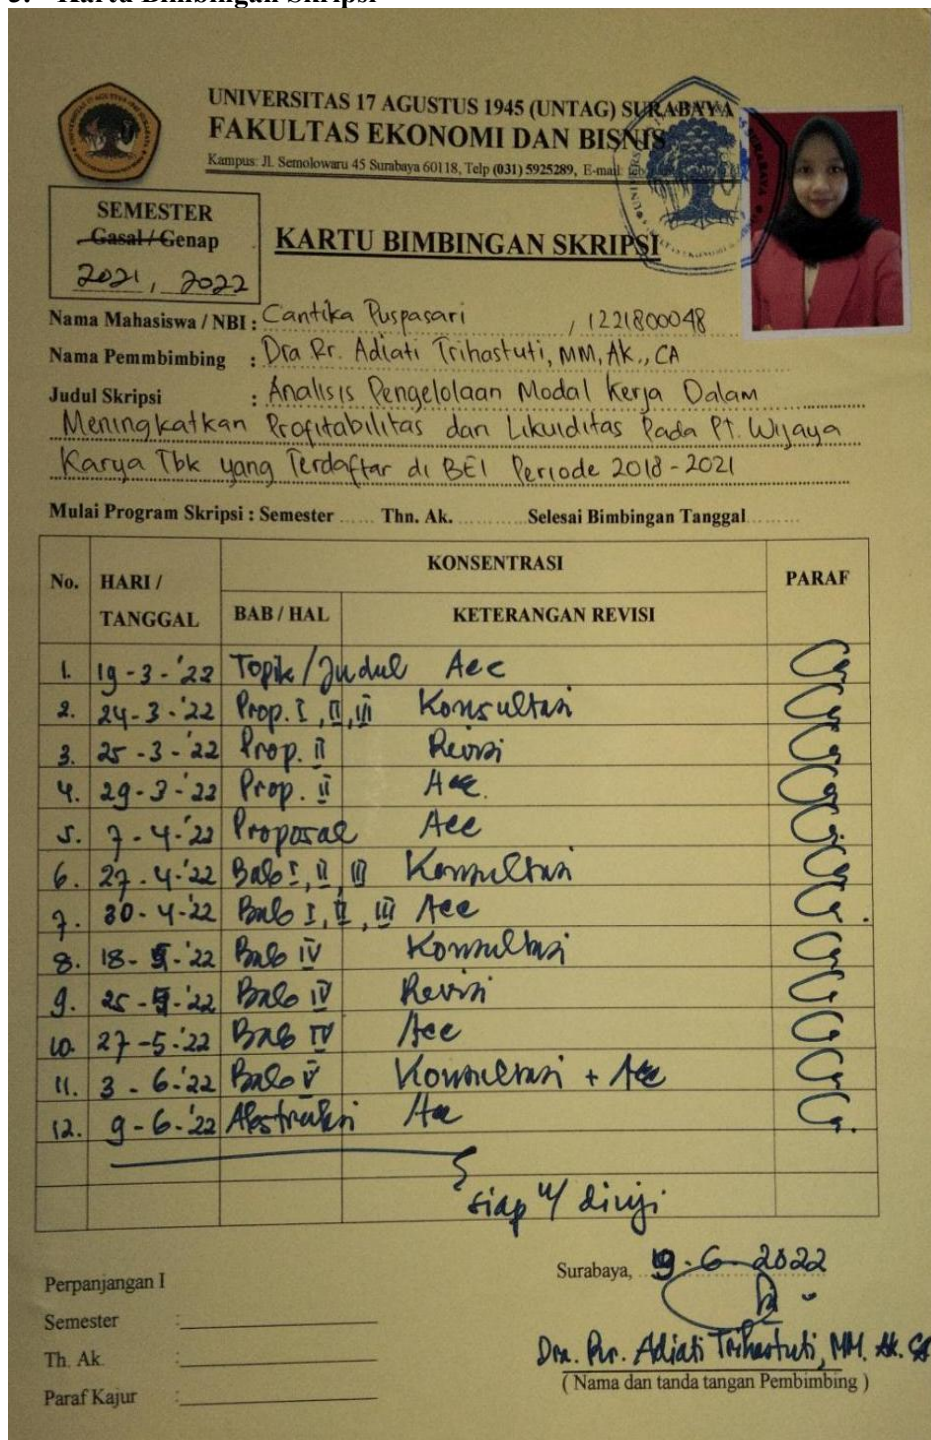 3. Kartu Bimbingan Skripsi
UNIVERSITAS 17 AGUSTUS 1945 (UNTAG) SURABAYA
FAKULTAS EKONOMI DAN BISNIS
Kampus: Jl. Semolowaru 45 Surabaya 60118, Telp (031) 5925289, E-mail:
SEMESTER
Gasal / Genap
2021, 2022
KARTU BIMBINGAN SKRIPSI
Nama Mahasiswa / NBI : Cantika Puspasari / 1221800048
Nama Pemmbimbing : Dra Rr. Adiati Trihastuti, MM, Ak., CA
Judul Skripsi : Analisis Pengelolaan Modal Kerja Dalam
Meningkatkan Profitabilitas dan Likuiditas Pada PT. Wijaya
Karya Tbk yang Terdaftar di BEI Periode 2018 - 2021
Mulai Program Skripsi : Semester ...... Thn. Ak. .......... Selesai Bimbingan Tanggal .........
No. HARI / TANGGAL KONSENTRASI PARAF
BAB / HAL KETERANGAN REVISI
1. 19 - 3 - '22 Topik / Judul Acc
2. 24 - 3 - '22 Prop. I, II, III Konsultasi
3. 25 - 3 - '22 Prop. II Revisi
4. 29 - 3 - '22 Prop. II Acc.
5. 7 - 4 - '22 Proposal Acc
6. 27 - 4 - '22 Bab I, II, III Konsultasi
7. 30 - 4 - 22 Bab I, II, III Acc
8. 18 - 5 - '22 Bab IV Konsultasi
9. 25 - 5 - '22 Bab IV Revisi
10. 27 - 5 - '22 Bab IV Acc
11. 3 - 6 - '22 Bab V Konsultasi + Acc
12. 9 - 6 - '22 Abstraksi Acc
siap u/ diuji
Surabaya, 9 - 6 - 2022
Perpanjangan I
Semester :
Th. Ak. :
Paraf Kajur :
Dra. Rr. Adiati Trihastuti, MM. Ak. CA
( Nama dan tanda tangan Pembimbing )